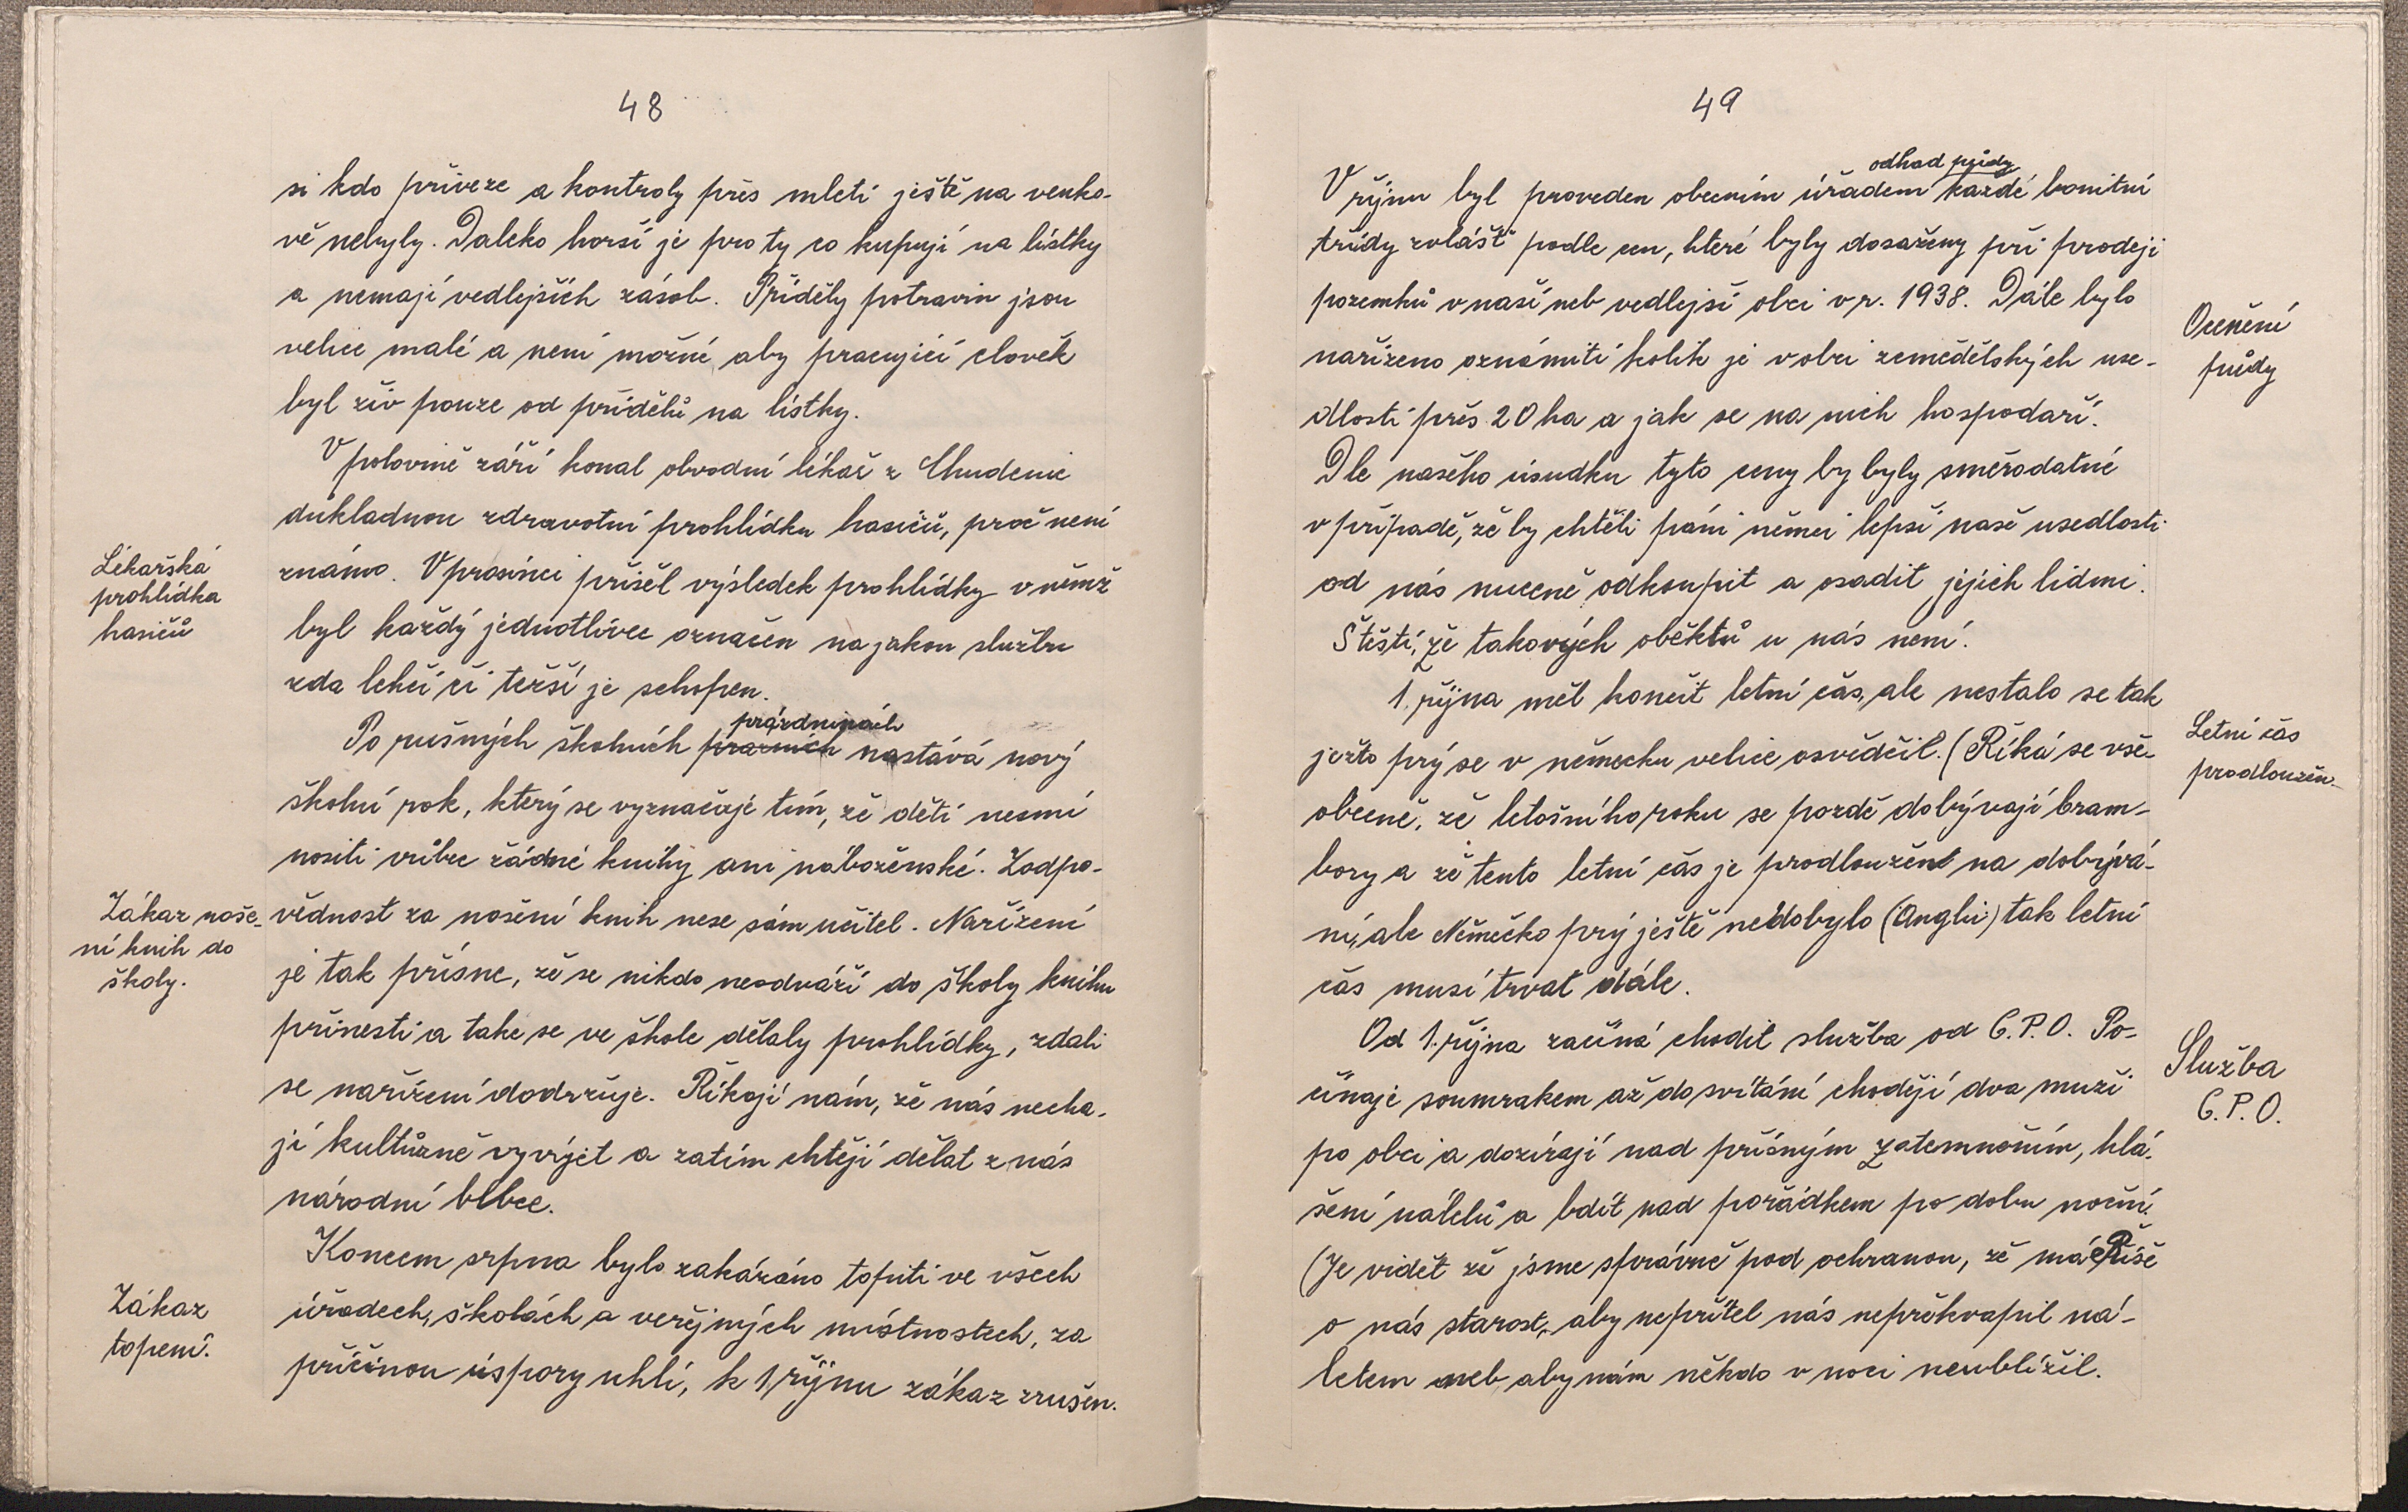 48
si kdo přiveze a kontroly přes mletí ještě na venko-
vě nebyly. Daleko horší je pro ty co kupují na lístky
a nemají vedlejších zásob. Příděly potravin jsou
velice malé a není možné, aby pracující člověk
byl živ pouze od přídělů na lístky.
V polovině září konal obvodní lékař z Chudenic
důkladnou zdravotní prohlídku hasičů, proč není
Lékařská
prohlídka
hasičů
známo. V prosinci přišel výsledek prohlídky v němž
byl každý jednotlivec označen na jakou službu
zda lehčí či težší je schopen.
prázdninách
Po rušných školních prazních nastává nový
školní rok, který se vyznačuje tím, že děti nesmí
nositi vůbec žádné knihy ani náboženské. Zodpo-
Zákaz noše-
ní knih do
školy.
vědnost za nošení knih nese sám učitel. Nařízení
je tak přísne, že se nikdo neodváží do školy knihu
přinesti a take se ve škole dělaly prohlídky, zdali
se nařízení dodržuje. Říkají nám, že nás necha-
jí kultůrně vyvíjet a zatím chtějí dělat z nás
národní blbce.
Koncem srpna bylo zakázáno topiti ve všech
Zákaz
topení.
úřadech, školách a veřejných místnostech, za
příčinou úspory uhlí, k 1. říjnu zákaz zrušen.
49
odhad půdy
V říjnu byl proveden obecním úřadem každé bonitní
třídy zvlášť podle cen, které byly dosaženy při prodeji
pozemků v naší neb vedlejší obci v r. 1938. Dále bylo
Ocenění
půdy
nařízeno oznámiti kolik je v obci zemědělských use-
dlostí přes 20 ha a jak se na nich hospodaří.
Dle našeho úsudku tyto ceny by byly směrodatné
v případě, že by chtěli páni němci lepší naše usedlosti
od nás nuceně odkoupit a osadit jejich lidmi.
Štěstí, že takových oběktů u nás není.
1. října měl končit letní čas, ale nestalo se tak
Letní čas
prodloužen.
ježto prý se v německu velice osvědčil. (Říká se vše-
obecně, že letošního roku se pozdě dobývají bram-
bory a že tento letní čas je prodloužent na dobývá-
ní, ale Německo prý ještě nedobylo (Anglii) tak letní
čas musí trvat dále.
Od 1. října začíná chodit služba od C.P.O. Po-
Služba
C.P.O.
čínaje soumrakem až do svítání chodějí dva muži
po obci a dozírají nad přísným zatemnoním, hlá-
šení náletů a bdít nad pořádkem po dobu noční.
(Je vidět že jsme správně pod ochranou, že má Říše
o nás starost, aby nepřítel nás nepřekvapil ná-
letem neb aby nám někdo v noci neublížil.